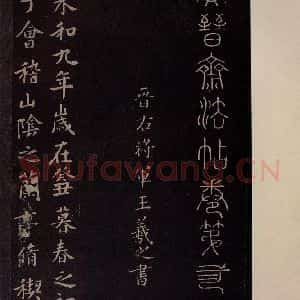 晉齋法帖卷第
晉右將軍王羲之書
永和九年歲在癸丑暮春之初
于會稽山陰之蘭亭脩禊
Shufawang.CN